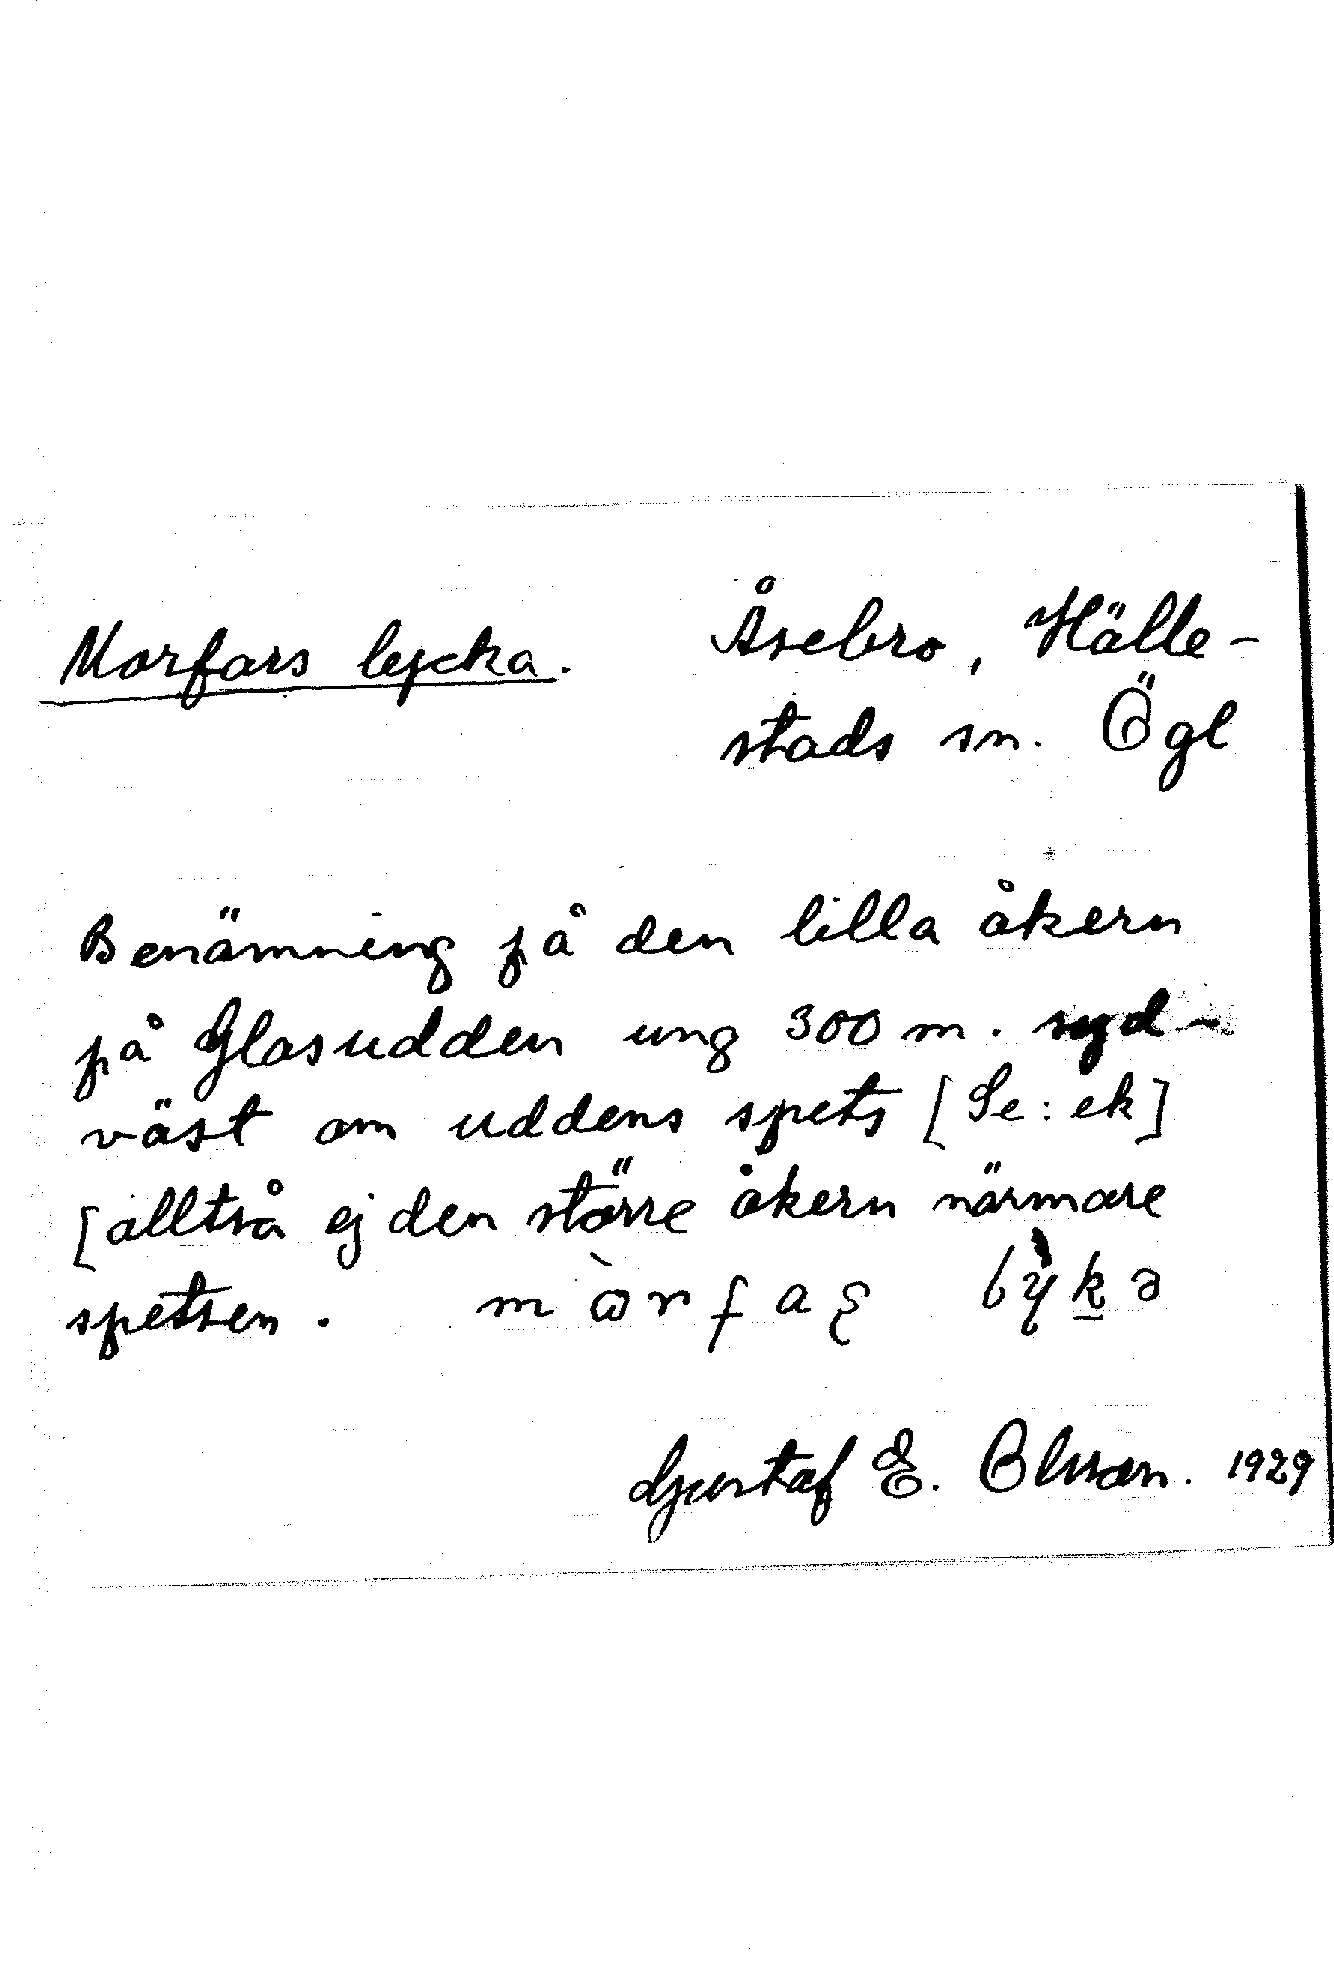 Morfars lycka. Åsebro, Hälle-
stads sn. Ögl
Benämning på den lilla åkern
på Glasudden ung 300 m. syd-
väst om uddens spets [Se: ek]
[alltså ej den större åkern närmare
spetsen.
Gustaf E. Olsson. 1929